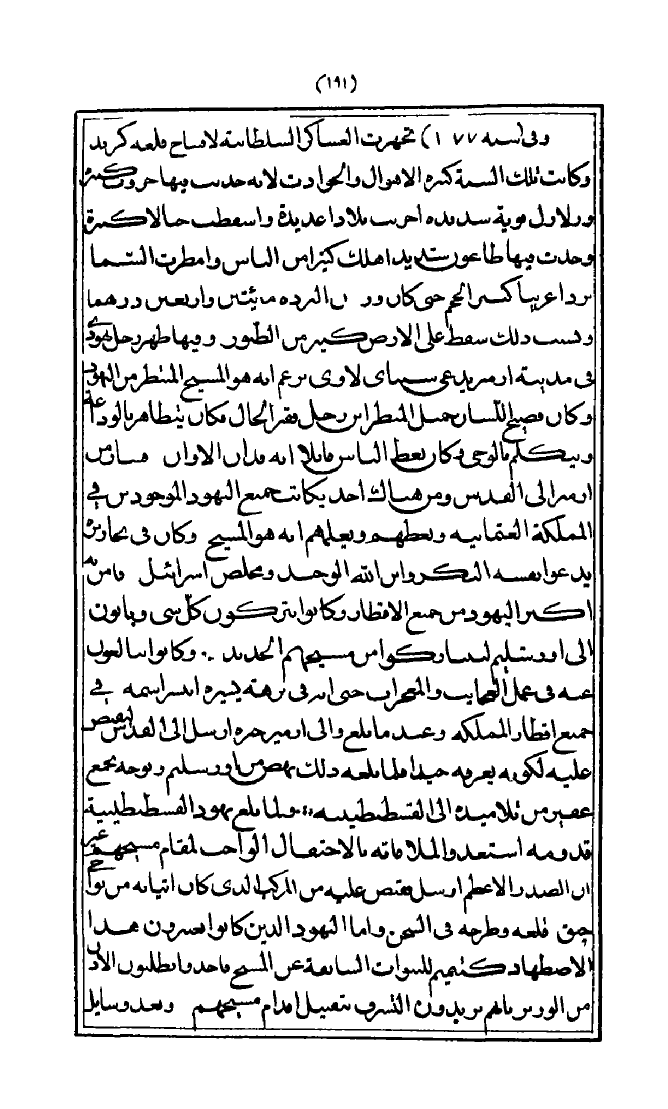 (١٩١)
وفى (سنة ١٠٧٧) تجهزت العساكر السلطانية لافتتاح قلعة كريد
وكانت تلك السنة كثيرة الاهوال والحوادث لانه حدث فيها حروب كثيرة
وزلازل قوية شديدة اخربت بلادا عديدة واسقطت جبالا كثيرة
وحدث فيها طاعون شديد اهلك كثيرا من الناس وامطرت السما
بردا غريبا كبير الحجم حتى كان وزن البرده مائتين واربعين درهما
وبسبب ذلك سقط على الارض كثير من الطيور وفيها ظهر رجل يهودى
فى مدينة ازمير يدعى سبتاى لاوى يزعم انه هو المسيح المنتظر من اليهود
وكان فصيح اللسان جميل المنظر ابن رجل فقير الحال فكان يتظاهر بالوداعة
ويتكلم بالوحى وكان يعظ الناس قايلا انه قد ان الاوان فسار من
ازمير الى القدس ومن هناك اخذ يكاتب جميع اليهود الموجودين فى
المملكة العثمانيه ويعظهم ويعلمهم انه هو المسيح وكان فى تحاريره
يدعوا نفسه البكر وابن الله الوحيد ومخلص اسرائيل فامن به
اكثر اليهود من جميع الاقطار وكانوا يتركون كل شى وياتون
الى اورشليم ليتباركوا من مسيحهم الجديد .. وكانوا يبالغون
عنه فى عمل العجايب والمعجزات حتى انه فى برهة يسيره انتشر اسمه فى
جميع اقطار المملكه وعندما بلغ والى ازمير خبره ارسل الى القدس ليقبض
عليه لكونه يعرفه جيدا فلما بلغه ذلك نهض من اورشليم وتوجه بجمع
غفير من تلاميذه الى القسطنطينيه .. ولما بلغ يهود القسطنطينية
قدومه استعدوا لملاقاته بالاحتفال الواجب لمقام مسيحهم غير
ان الصدر الاعظم ارسل فقبض عليه من المركب الذى كان اتيا به من نواحى
جنق قلعه وطرحه فى السجن واما اليهود الذين كانوا يعتبرون هذا
الاضطهاد كتتميم للنبوات السابقة عن المسيح فاخذوا يطلبون الاذن
من الوزير بانهم يريدون التشرف بتقبيل اقدام مسيحهم وبعد وسايل